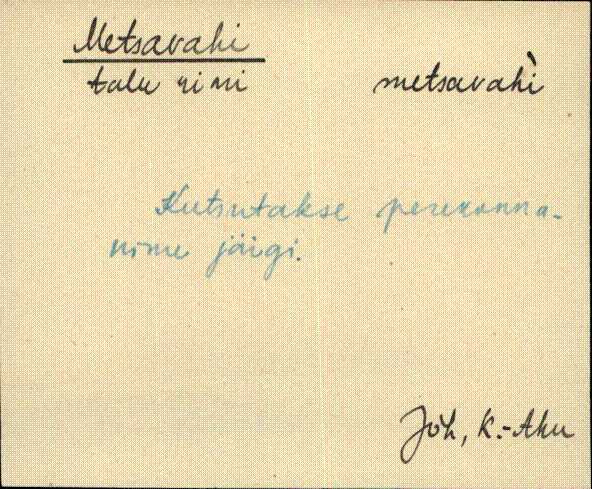 Metsavahi
talu nimi metsavahi`
Kutsutakse perekonna-
nime järgi.
Jõh, K.-Ahu